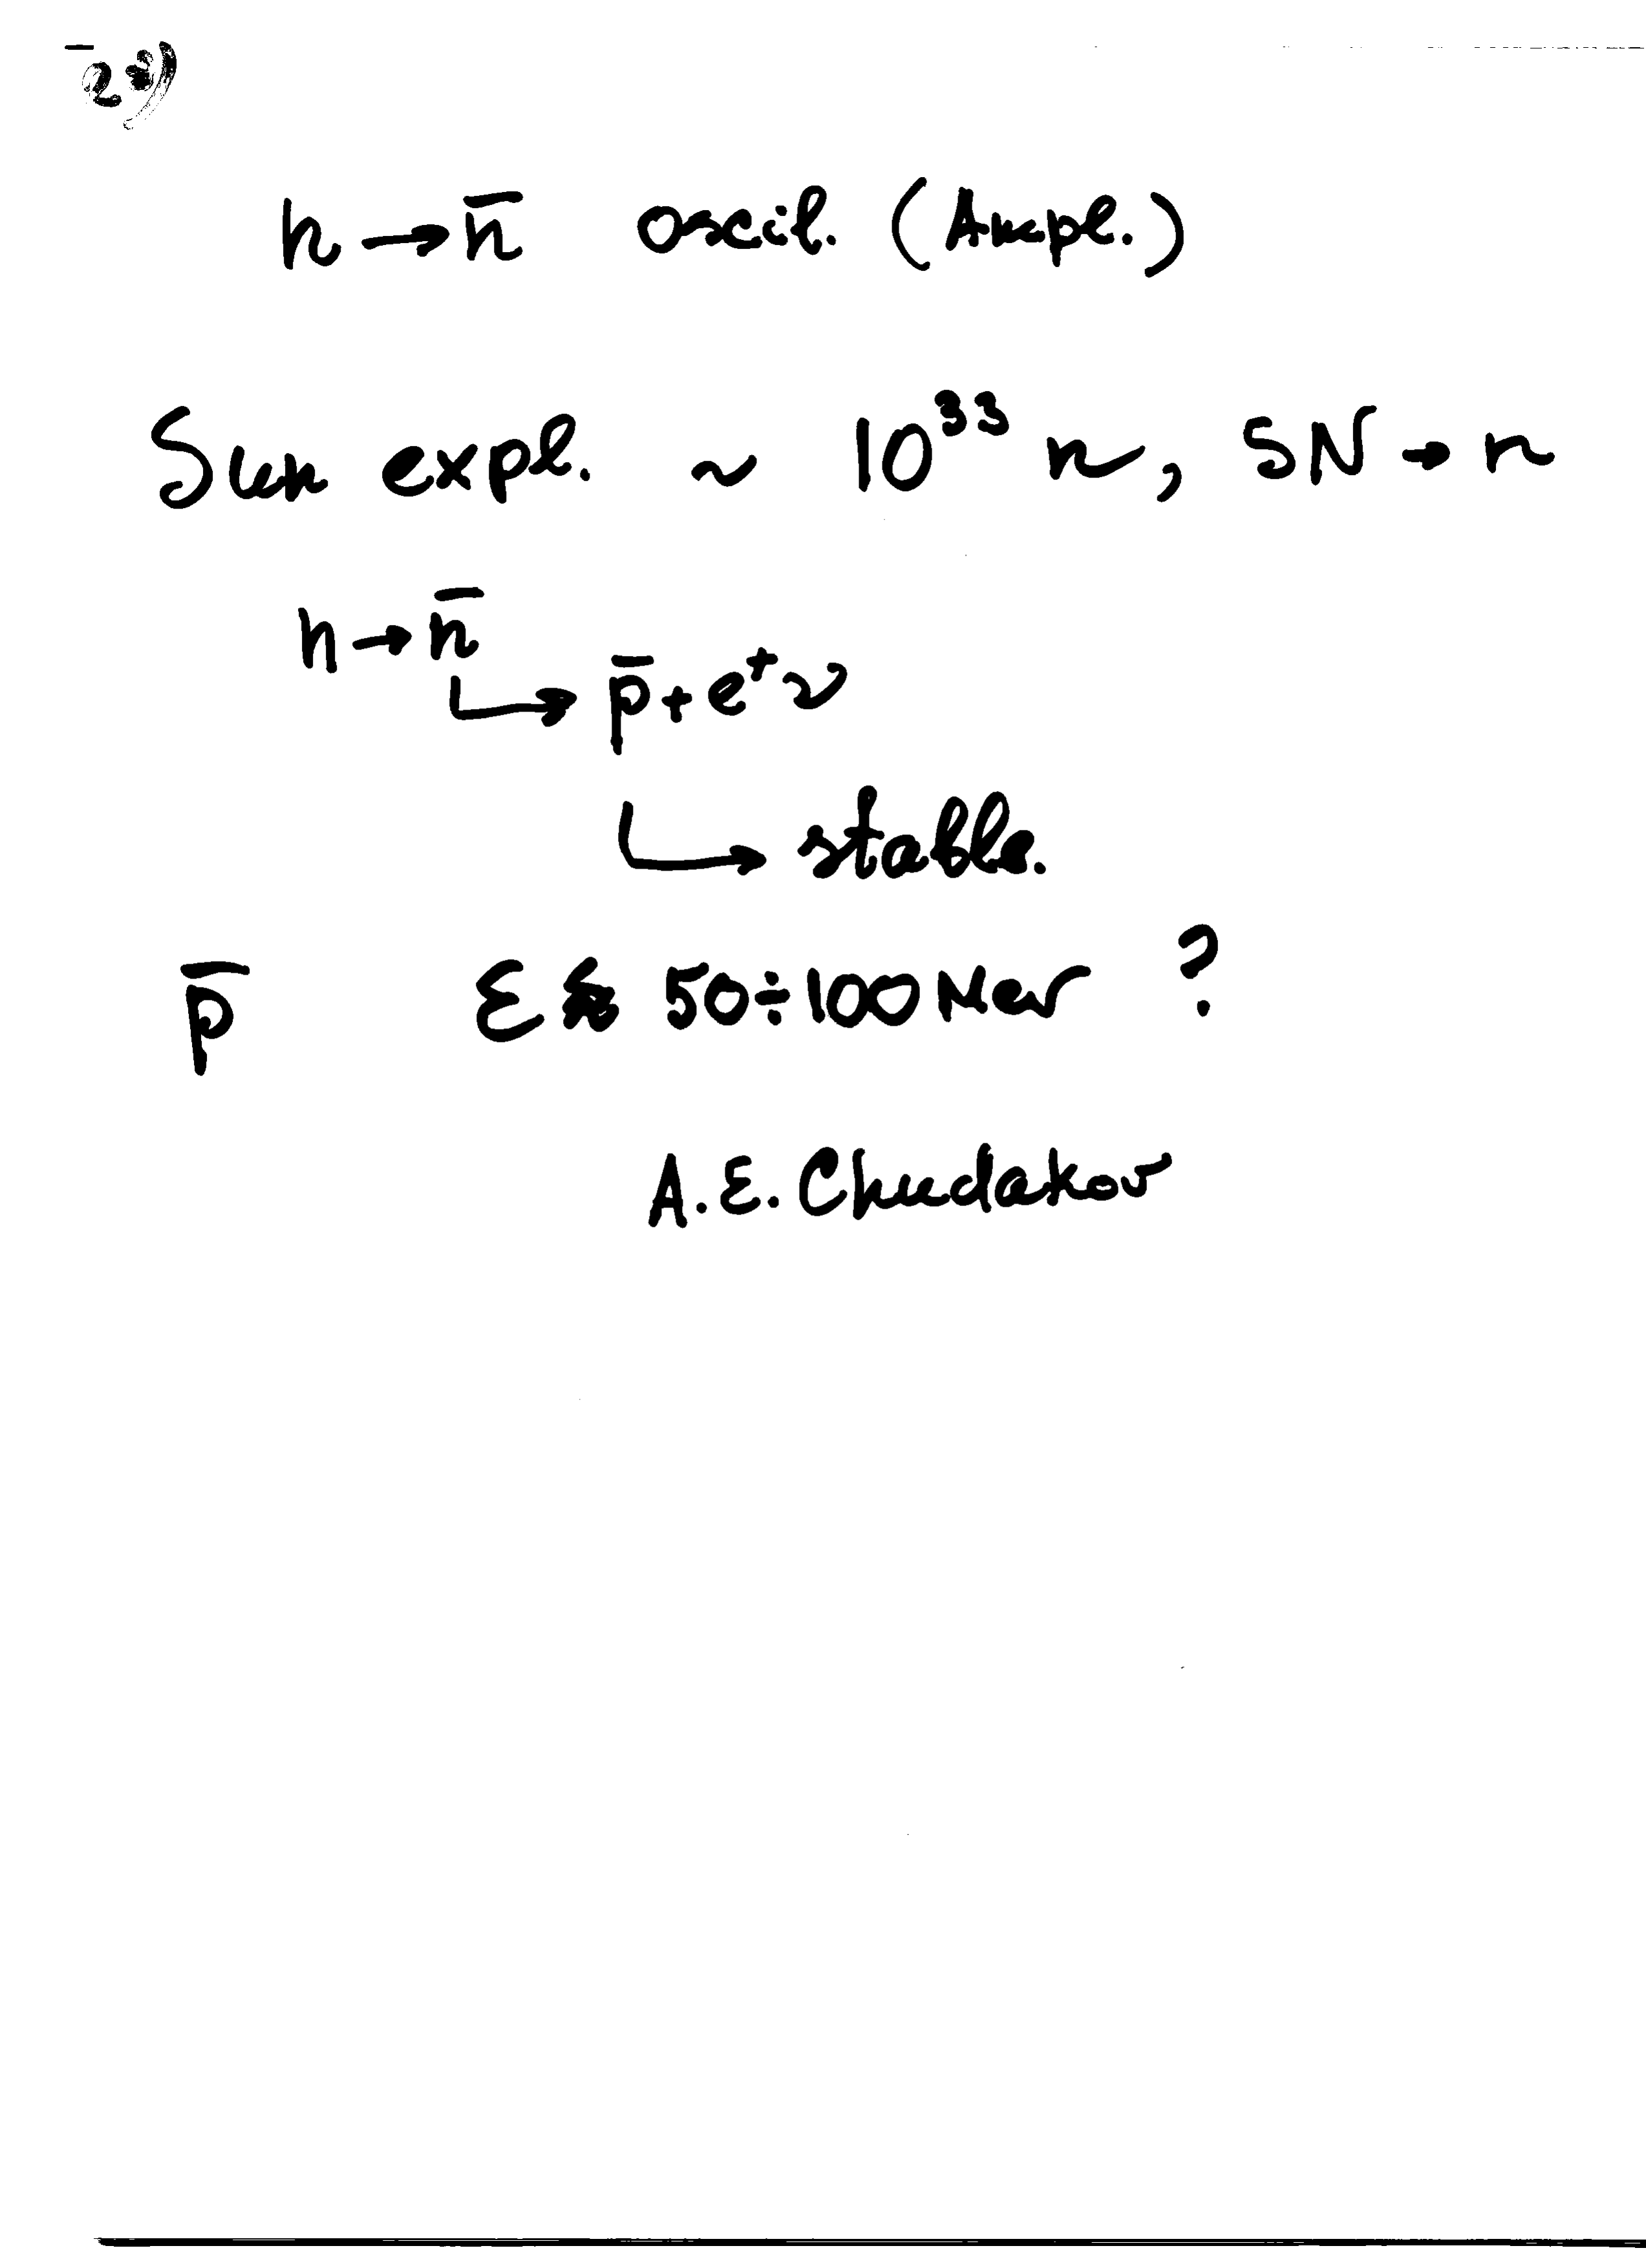 n → n̄ oscil. (Ampl.)
Sun expl. ~ 10³³ n, SN → n
n → n̄
↳ p̄ + e⁺ν
↳ stable.
p̄ ε ≈ 50÷100 Mev ?
A.E. Chudakov